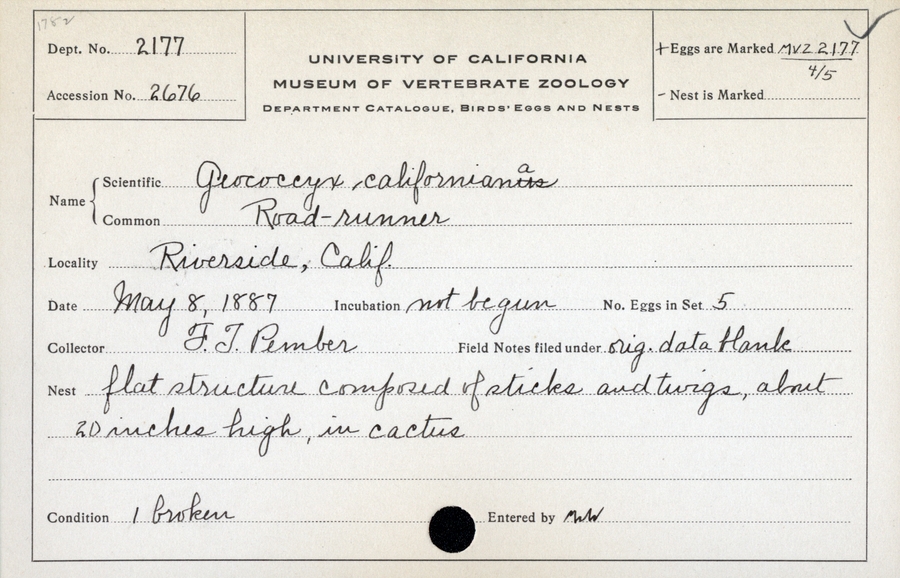 1782
Dept. No. 2177
Accession No. 2676
UNIVERSITY OF CALIFORNIA
MUSEUM OF VERTEBRATE ZOOLOGY
DEPARTMENT CATALOGUE, BIRDS' EGGS AND NESTS
+ Eggs are Marked MVZ 2177
4/5
- Nest is Marked
Name
Scientific Geococcyx californianus a
Common Road-runner
Locality Riverside, Calif.
Date May 8, 1887 Incubation not begun No. Eggs in Set 5
Collector F. T. Pember Field Notes filed under orig. data blank
Nest flat structure composed of sticks and twigs, about
20 inches high, in cactus
Condition 1 broken Entered by MW